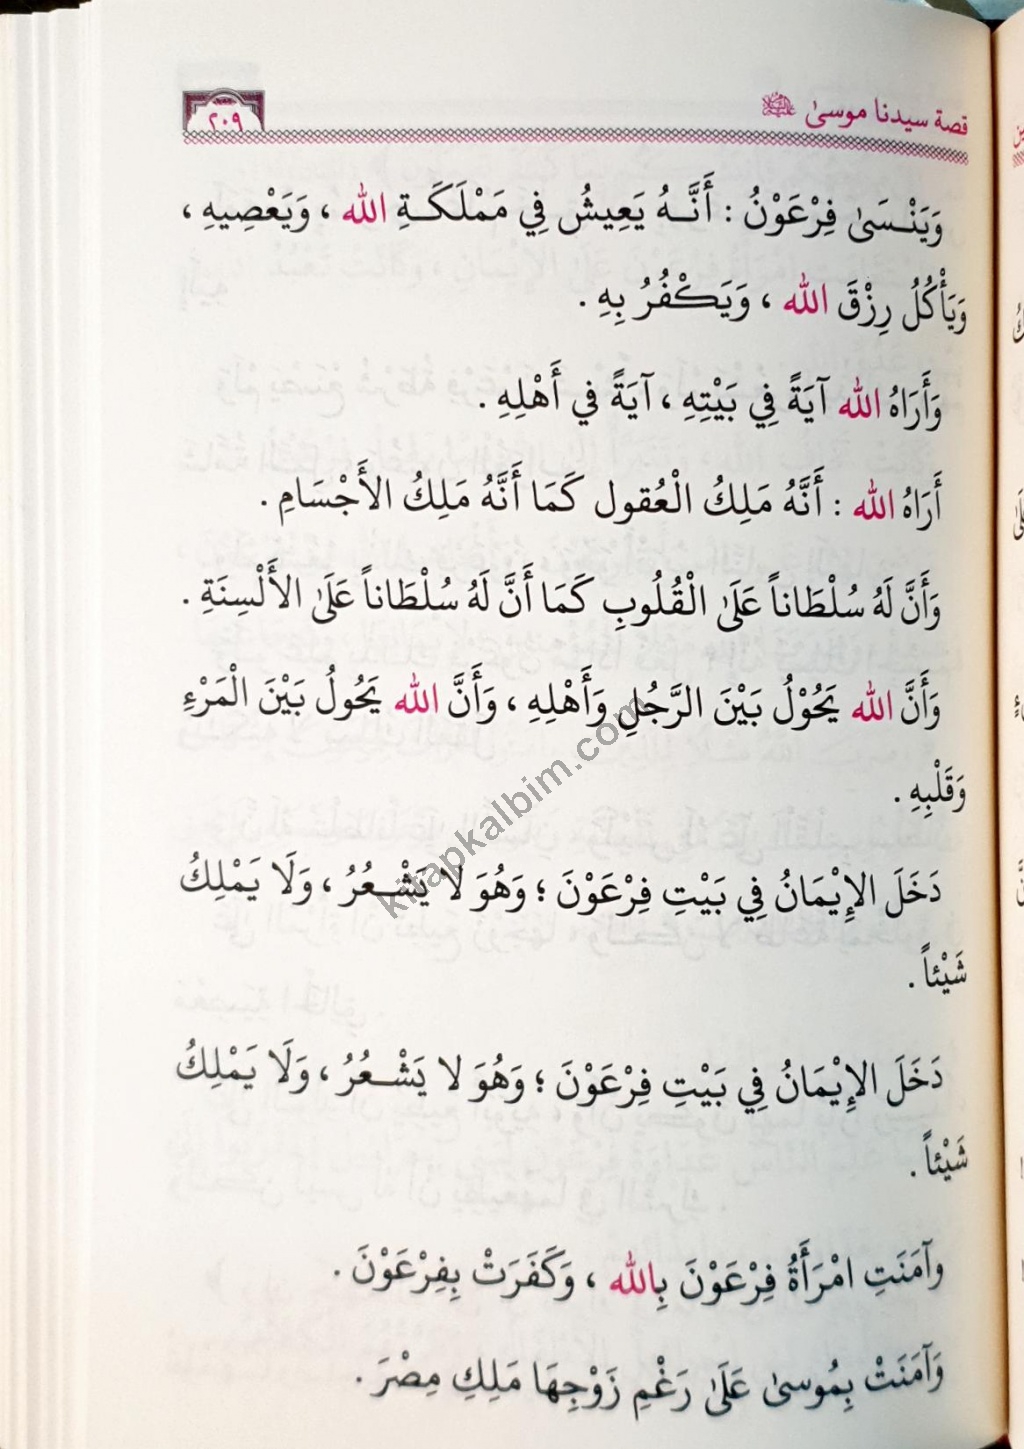 قصة سيدنا موسىٰ عليه السلام
٢٠٩
وَيَنْسَىٰ فِرْعَوْنُ : أَنَّهُ يَعِيشُ فِي مَمْلَكَةِ الله ، وَيَعْصِيهِ ،
وَيَأْكُلُ رِزْقَ الله ، وَيَكْفُرُ بِهِ .
وَأَرَاهُ الله آيَةً فِي بَيْتِهِ ، آيَةً في أَهْلِهِ .
أَرَاهُ الله : أَنَّهُ مَلِكُ الْعُقول كَمَا أَنَّهُ مَلِكُ الأَجْسَامِ .
وَأَنَّ لَهُ سُلْطَاناً عَلَىٰ الْقُلُوبِ كَمَا أَنَّ لَهُ سُلْطَاناً عَلَىٰ الأَلْسِنَةِ .
وَأَنَّ الله يَحُوْلُ بَيْنَ الرَّجُلِ وَأَهْلِهِ ، وَأَنَّ الله يَحُولُ بَيْنَ الْمَرْءِ
وَقَلْبِهِ .
دَخَلَ الإِيْمَانُ فِي بَيْتِ فِرْعَوْنَ ؛ وَهُوَ لا يَشْعُرُ ، وَلَا يَمْلِكُ
شَيْئاً .
دَخَلَ الإِيْمَانُ فِي بَيْتِ فِرْعَوْنَ ؛ وَهُوَ لا يَشْعُرُ ، وَلَا يَمْلِكُ
شَيْئاً .
وآمَنَتِ امْرَأَةُ فِرْعَوْنَ بِالله ، وَكَفَرَتْ بِفِرْعَوْنَ .
وَآمَنَتْ بِمُوسىٰ عَلَىٰ رَغْمِ زَوْجِهَا مَلِكِ مِصْرَ .
kitapkalbim.com